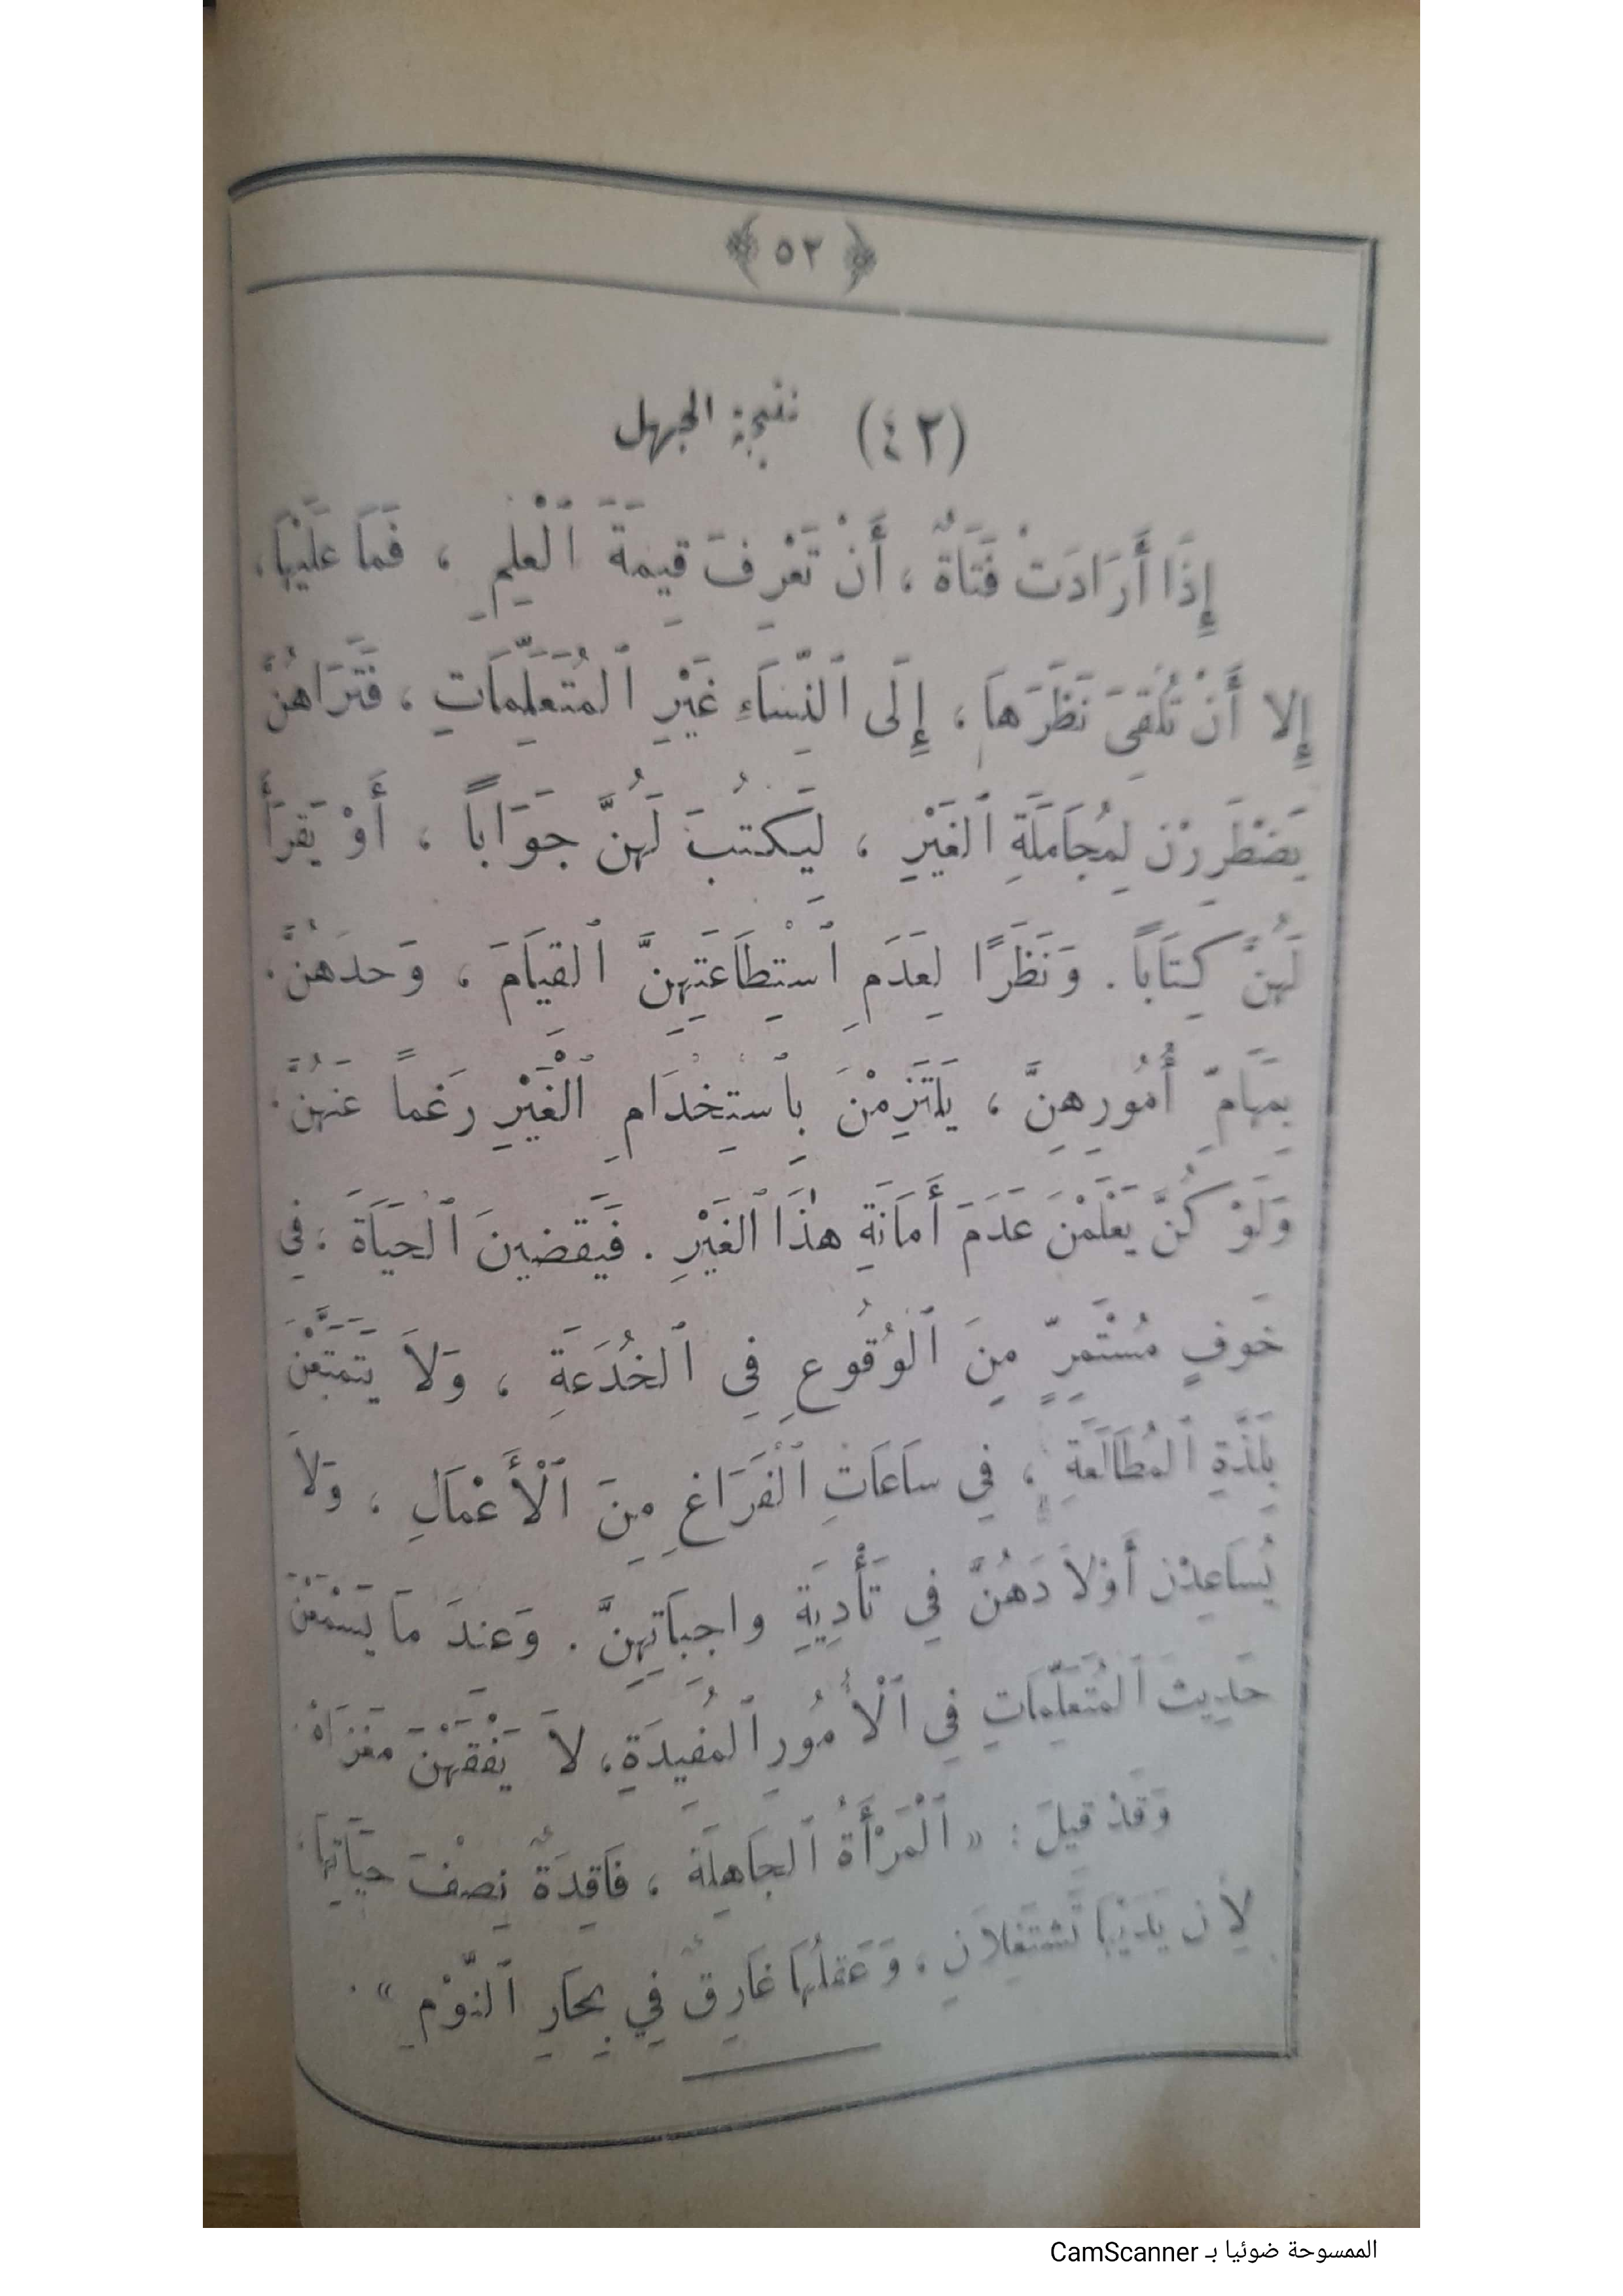 ﴿ ٥٢ ﴾
(٤٢) نتيجة الجهل
إِذَا أَرَادَتْ فَتَاةٌ ، أَنْ تَعْرِفَ قِيمَةَ ٱلْعِلْمِ ، فَمَا عَلَيْهَا ،
إِلا أَنْ تُلْقِىَ نَظَرَهَا ، إِلَى ٱلنِّسَاءِ غَيْرِ ٱلمُتَعَلِّمَاتِ ، فَتَرَاهُنَّ
يَضْطَرِرْنَ لِمُجَامَلَةِ ٱلغَيْرِ ، لِيَكتُبَ لَهُنَّ جَوَاباً ، أَوْ يَقرَأَ
لَهُنَّ كِتَاباً . وَنَظَرًا لِعَدَمِ ٱسْتِطَاعَتِهِنَّ ٱلقِيَامَ ، وَحدَهُنَّ ،
بِمَهَامِّ أُمُورِهِنَّ ، يَلتَزِمْنَ بِٱستِخْدَامِ ٱلْغَيْرِ رَغماً عَنهُنَّ .
وَلَوْ كُنَّ يَعْلَمْنَ عَدَمَ أَمَانَةِ هٰذَا ٱلغَيْرِ . فَيَقضِينَ ٱلحَيَاةَ ، فِي
خَوفٍ مُسْتَمِرٍّ مِنَ ٱلوُقُوعِ فِي ٱلخُدَعَةِ ، وَلاَ يَتَمَتَّعْنَ
بِلَذَّةِ ٱلمُطَالَعَةِ ، فِي سَاعَاتِ ٱلْفَرَاغِ مِنَ ٱلْأَعْمَالِ ، وَلاَ
يُسَاعِدْنَ أَوْلاَدَهُنَّ فِي تَأْدِيَةِ واجِبَاتِهِنَّ . وَعِندَ مَا يَسْمَعْنَ
حَدِيثَ ٱلمُتَعَلِّمَاتِ فِي ٱلْأُمُورِ ٱلمُفِيدَةِ ، لاَ يَفْقَهْنَ مَغزَاهُ .
وَقَدْ قِيلَ : « ٱلْمَرْأَةُ ٱلجَاهِلَة ، فَاقِدَةٌ نِصْفَ حَيَاتِهَا ،
لِأَن يَدَيْهَا تَشتَغِلاَنِ ، وَعَقلُهَا غَارِقٌ فِي بِحَارِ ٱلنَّوْمِ » .
الممسوحة ضوئيا بـ CamScanner